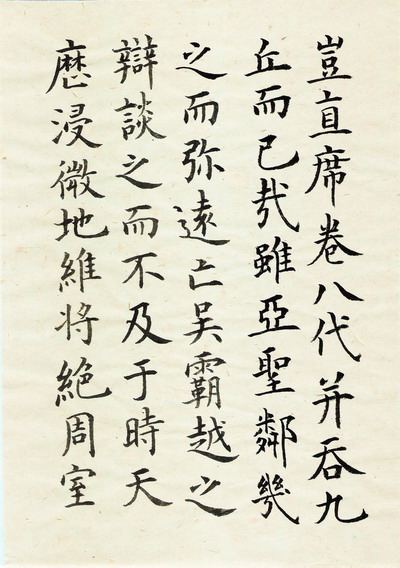 豈直席卷八代并吞九
丘而已哉雖亞聖鄰幾
之而弥遠亡吴霸越之
辯談之而不及于時天
歷浸微地維将絶周室